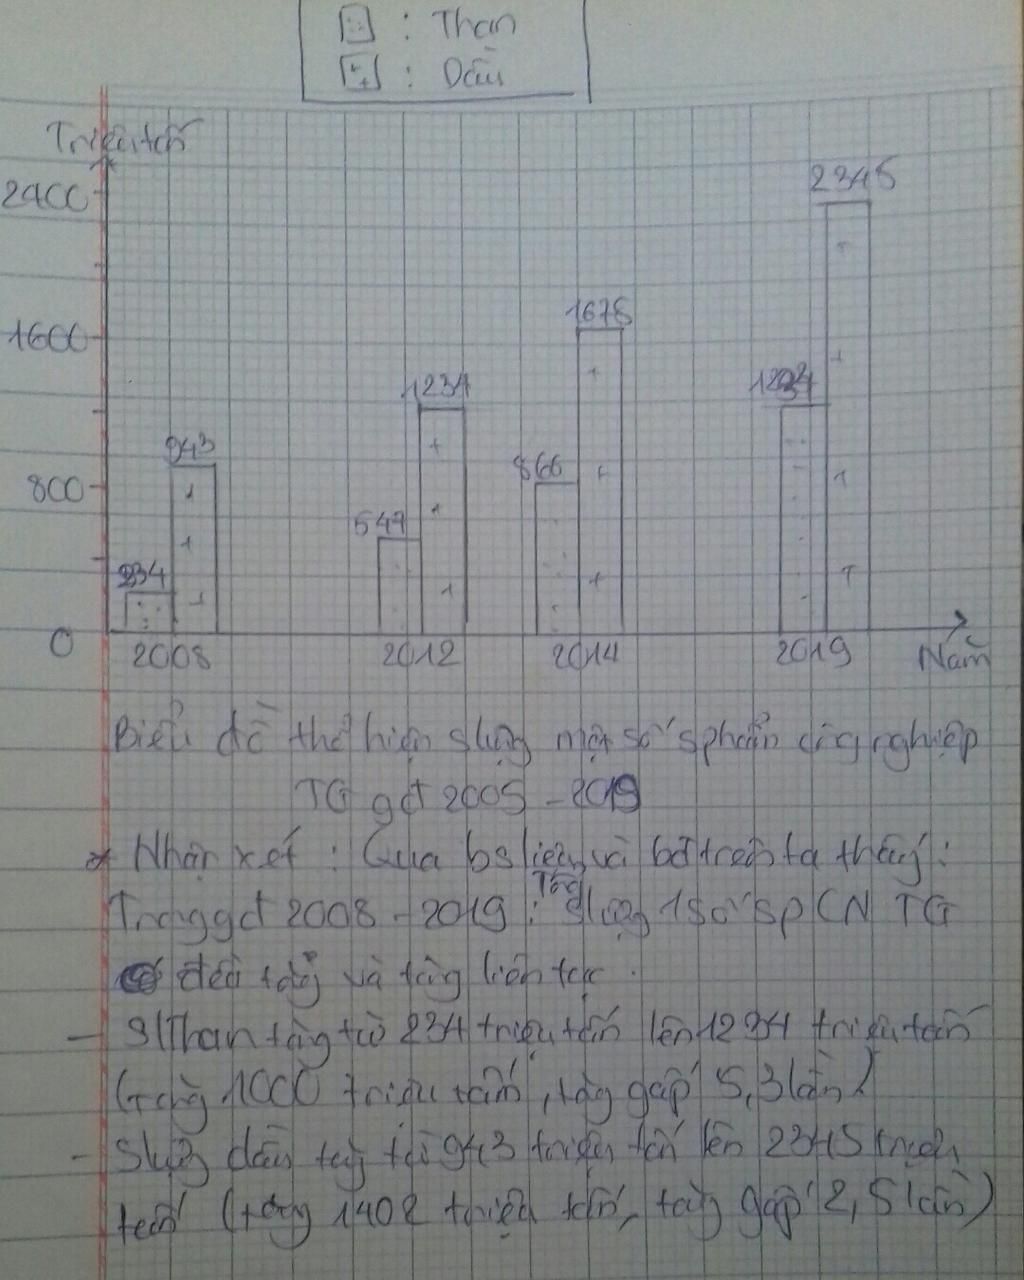 : Than
: Dầu
Triệu tấn
2400
2345
1600
1678
1234
1234
943
866
800
547
234
0
2008
2012
2014
2019
Năm
Biểu đồ thể hiện slượng một số sphẩm công nghiệp
TG gđ 2005 - 2019
* Nhận xét : Qua bs liệu và bđ trên ta thấy :
Trong gđ 2008 - 2019 : Tổng slượng 1 số sp CN TG
đều tăng và tăng liên tục .
- Sl Than tăng từ 234 triệu tấn lên 1234 triệu tấn
(tăng 1000 triệu tấn, tăng gấp 5,3 lần)
- Slượng dầu tăng từ 943 triệu tấn lên 2345 triệu
tấn (tăng 1402 triệu tấn, tăng gấp 2,5 lần)